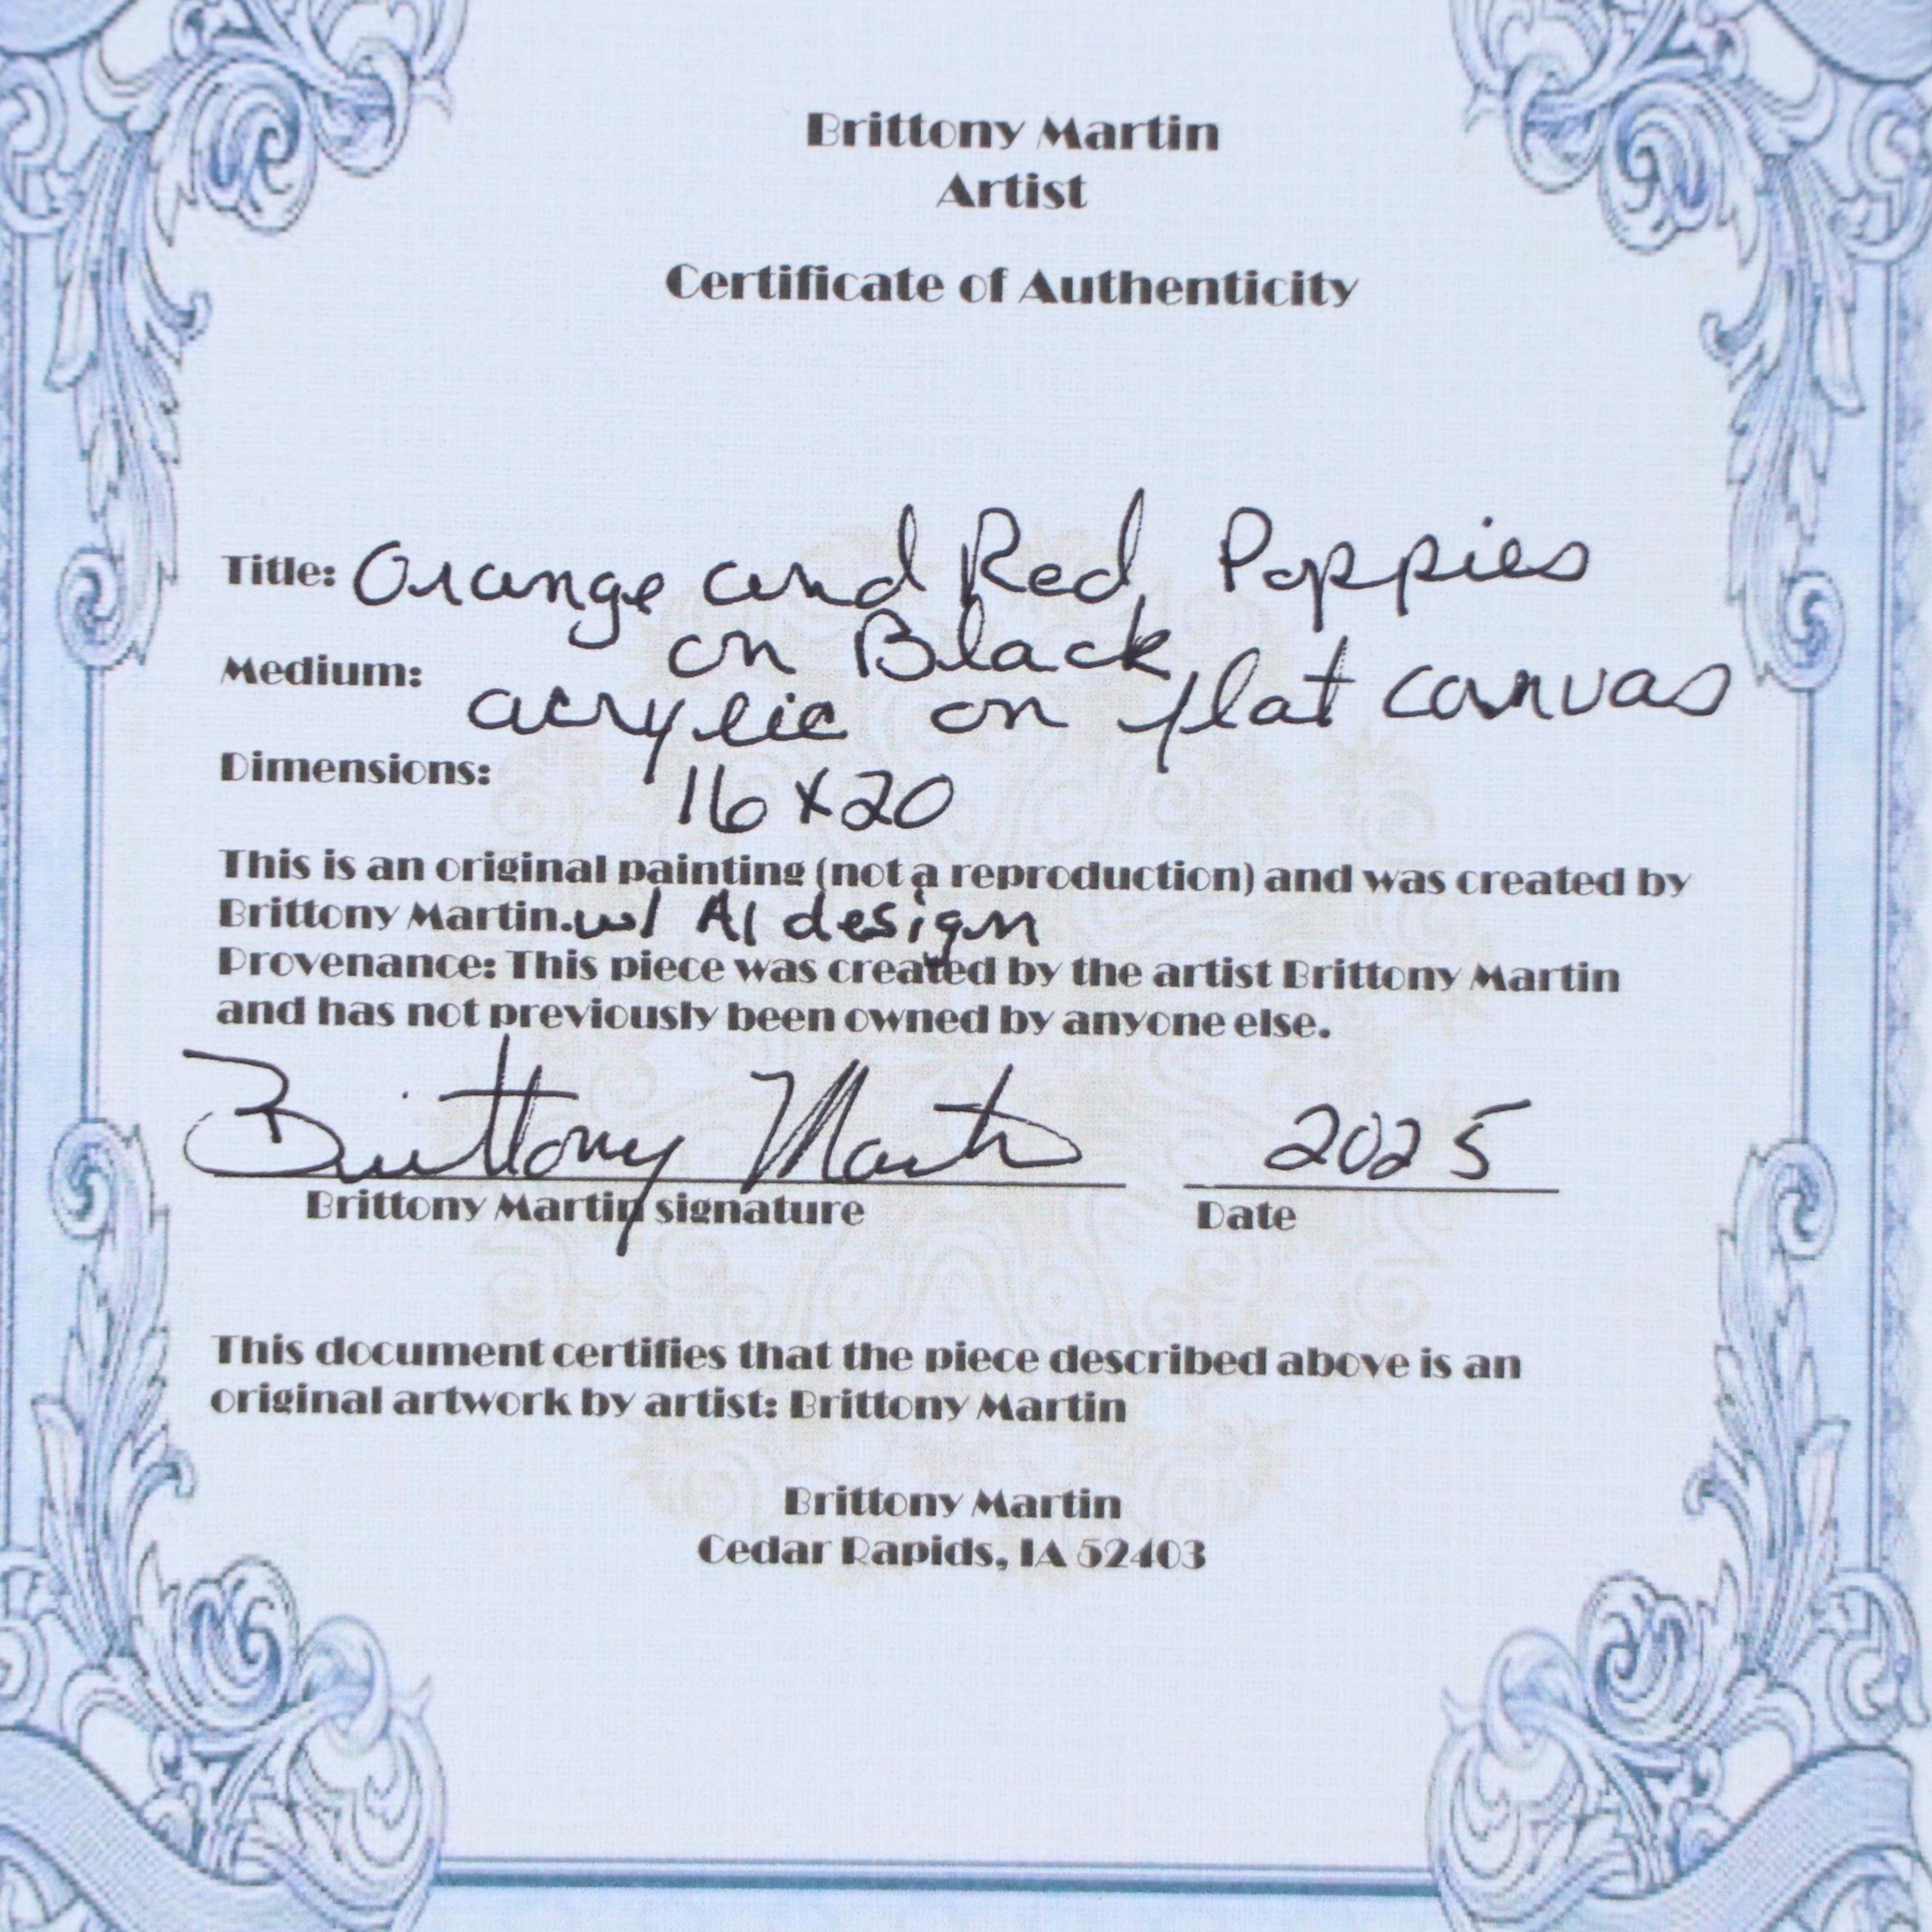 Brittony Martin
Artist
Certificate of Authenticity
Title: Orange and Red Poppies
on Black
Medium: acrylic on flat canvas
Dimensions: 16x20
This is an original painting (not a reproduction) and was created by
Brittony Martin. w/ AI design
Provenance: This piece was created by the artist Brittony Martin
and has not previously been owned by anyone else.
Brittony Martin 2025
Brittony Martin signature Date
This document certifies that the piece described above is an
original artwork by artist: Brittony Martin
Brittony Martin
Cedar Rapids, IA 52403